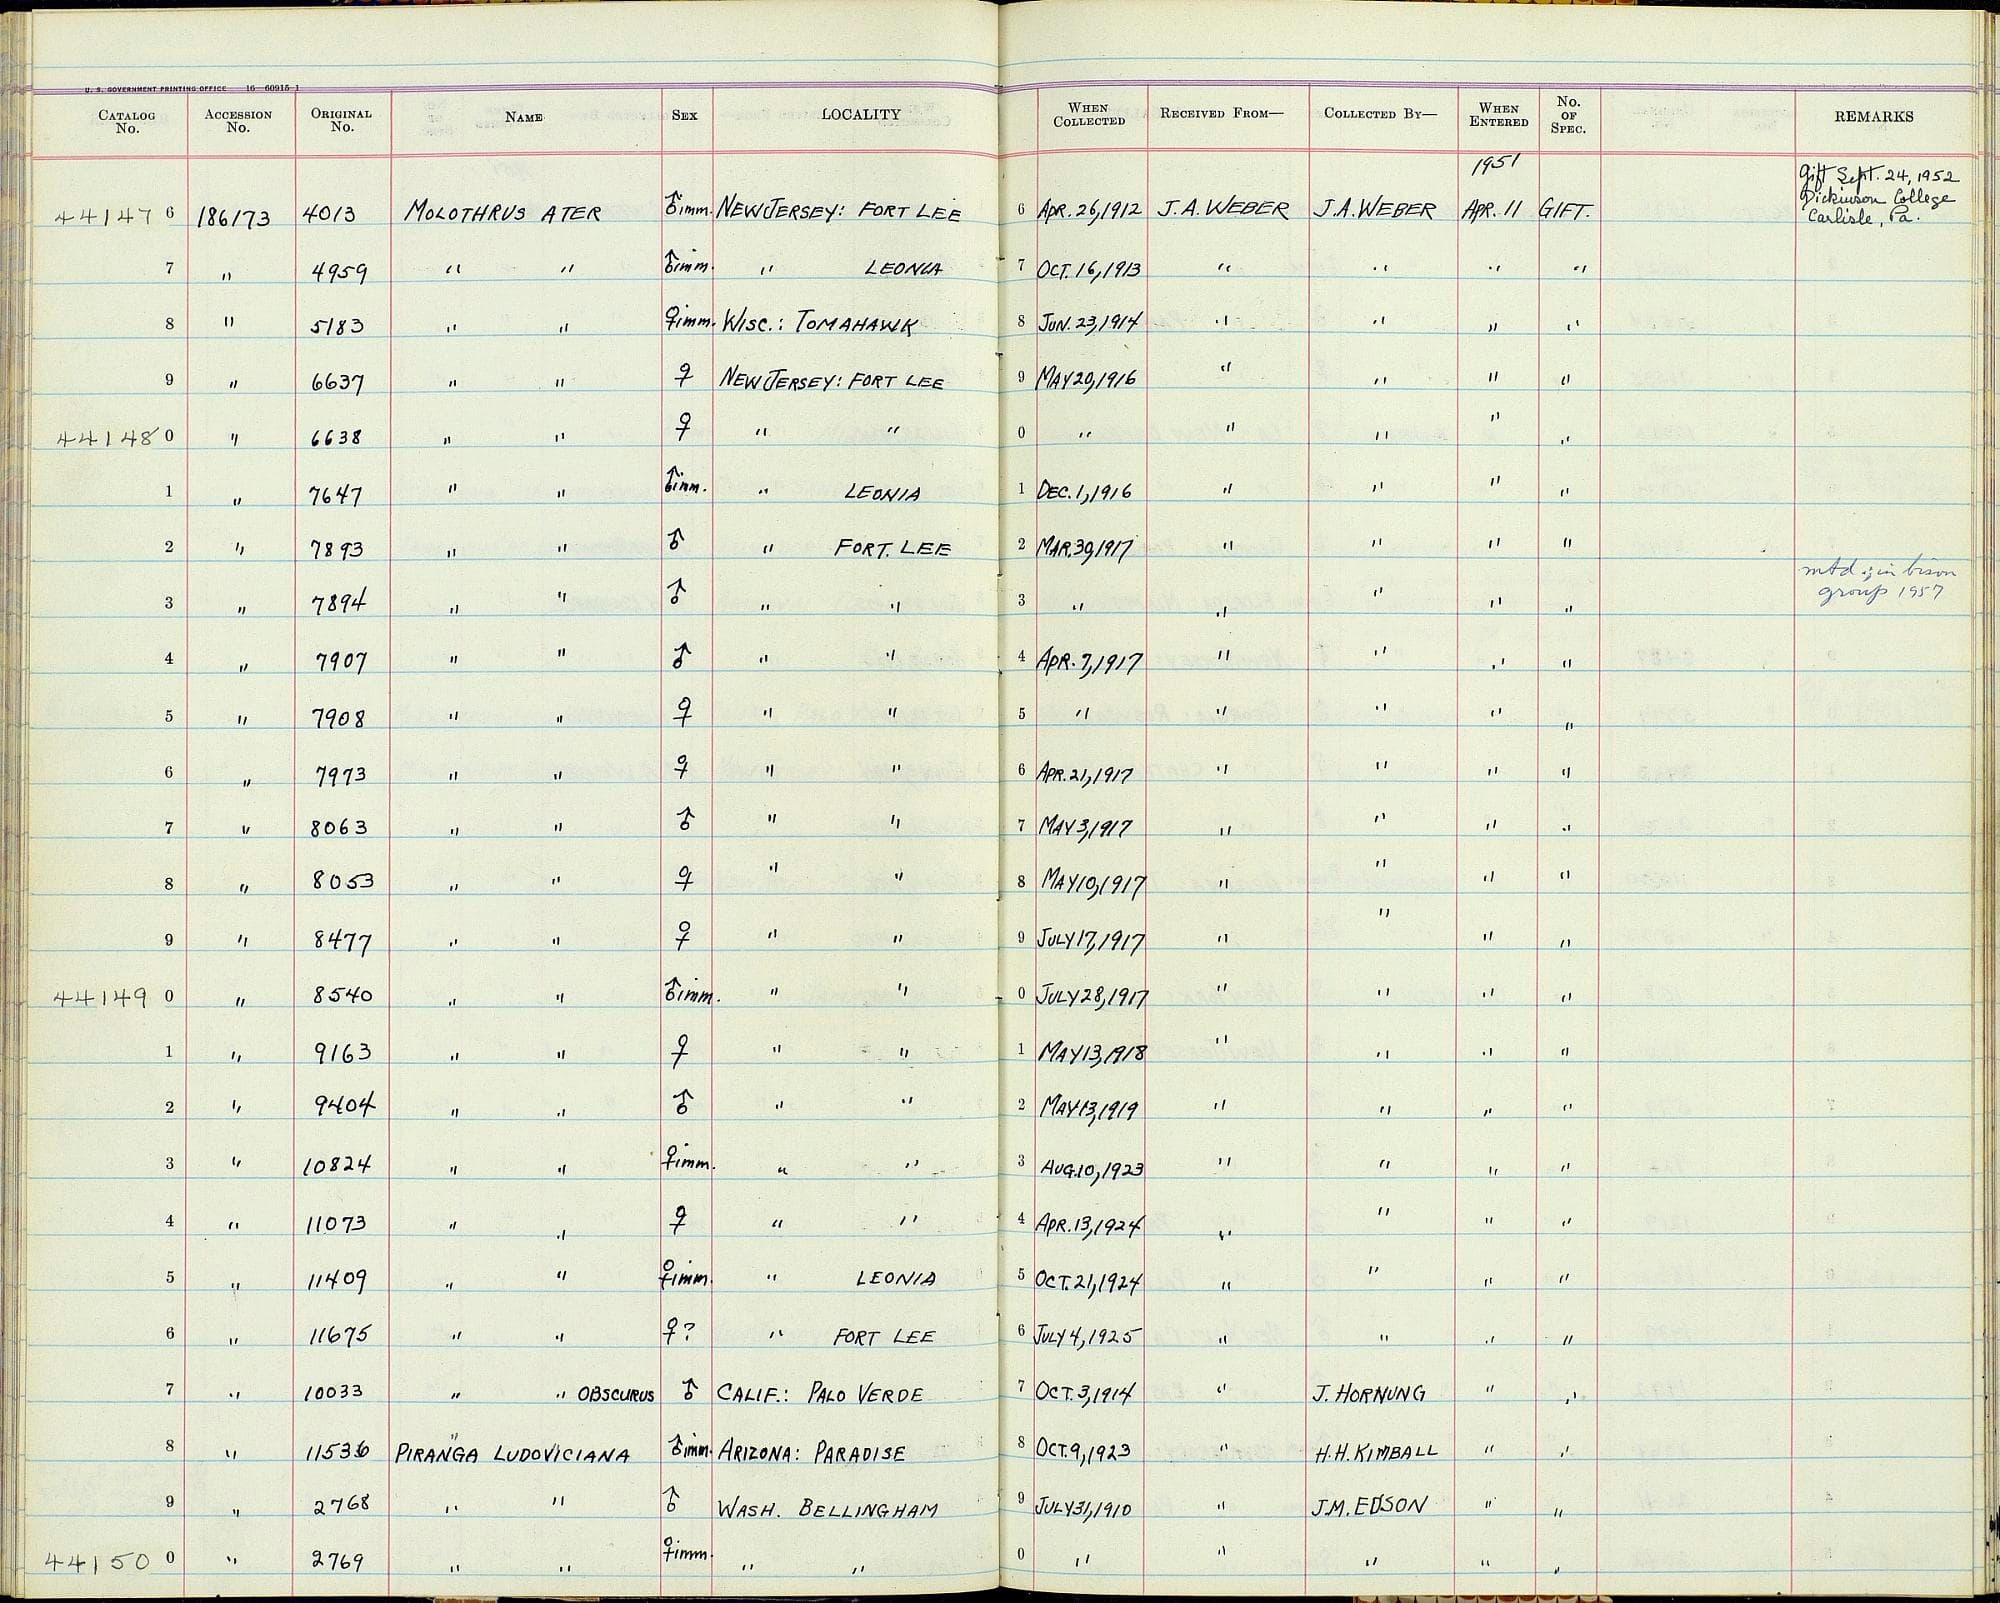 U. S. GOVERNMENT PRINTING OFFICE 16—60915-1
CATALOG No. ACCESSION No. ORIGINAL No. NAME SEX LOCALITY WHEN COLLECTED RECEIVED FROM— COLLECTED BY— WHEN ENTERED No. OF SPEC. REMARKS
1951
Gift Sept. 24, 1952
Dickinson College
Carlisle, Pa.
44147 6 186173 4013 MOLOTHRUS ATER ♂imm. NEW JERSEY: FORT LEE 6 APR. 26, 1912 J. A. WEBER J. A. WEBER APR. 11 GIFT.
7 " 4959 " " ♂imm. " LEONIA 7 OCT. 16, 1913 " " " "
8 " 5183 " " ♀imm. WISC.: TOMAHAWK 8 JUN. 23, 1914 " " " "
9 " 6637 " " ♀ NEW JERSEY: FORT LEE 9 MAY 20, 1916 " " " "
44148 0 " 6638 " " ♀ " " 0 " " " " "
1 " 7647 " " ♂imm. " LEONIA 1 DEC. 1, 1916 " " " "
2 " 7893 " " ♂ " FORT. LEE 2 MAR. 30, 1917 " " " "
3 " 7894 " " ♂ " " 3 " " " " " mtd. in bison
group 1957
4 " 7907 " " ♂ " " 4 APR. 7, 1917 " " " "
5 " 7908 " " ♀ " " 5 " " " " "
6 " 7973 " " ♀ " " 6 APR. 21, 1917 " " " "
7 " 8063 " " ♂ " " 7 MAY 3, 1917 " " " "
8 " 8053 " " ♀ " " 8 MAY 10, 1917 " " " "
9 " 8477 " " ♀ " " 9 JULY 17, 1917 " " " "
44149 0 " 8540 " " ♂imm. " " 0 JULY 28, 1917 " " " "
1 " 9163 " " ♀ " " 1 MAY 13, 1918 " " " "
2 " 9404 " " ♂ " " 2 MAY 13, 1919 " " " "
3 " 10824 " " ♀imm. " " 3 AUG. 10, 1923 " " " "
4 " 11073 " " ♀ " " 4 APR. 13, 1924 " " " "
5 " 11409 " " ♀imm. " LEONIA 5 OCT. 21, 1924 " " " "
6 " 11675 " " ♀? " FORT LEE 6 JULY 4, 1925 " " " "
7 " 10033 " " OBSCURUS ♂ CALIF.: PALO VERDE 7 OCT. 3, 1914 " J. HORNUNG " "
8 " 11536 PIRANGA LUDOVICIANA ♂imm. ARIZONA: PARADISE 8 OCT. 9, 1923 " H. H. KIMBALL " "
9 " 2768 " " ♂ WASH. BELLINGHAM 9 JULY 31, 1910 " J. M. EDSON " "
44150 0 " 2769 " " ♀imm. " " 0 " " " " "